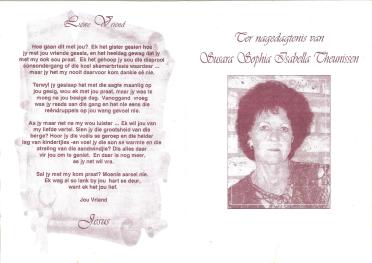 Liewe Vriend
Hoe gaan dit met jou? Ek het gister gesien hoe
jy met jou vriende gesels, en het heeldag gewag dat jy
met my ook sou praat. Ek het gehoop jy sou die dieprooi
sonsondergang of die koel skemerbriesie waardeer ...
maar jy het my nooit daarvoor kom dankie sê nie.
Terwyl jy geslaap het met die sagte maanlig op
jou gesig, wou ek met jou praat, maar jy was te
moeg na jou besige dag. Vanoggend vroeg
was jy reeds aan die gang en het nie eens die
reëndruppels op jou wang gevoel nie.
As jy maar net na my wou luister ... Ek wil jou van
my liefde vertel. Sien jy die grootsheid van die
berge? Hoor jy die voëls se geroep en die helder
lag van kindertjies -en voel jy die son se warmte en die
streling van die aandwindjie? Dis alles daar
vir jou om te geniet. En daar is nog meer,
as jy net wil vra.
Sal jy met my kom praat? Moenie aarsel nie.
Ek wag al so lank by jou hart se deur,
want ek het jou lief.
Jou Vriend
Jesus
Ter nagedagtenis van
Susara Sophia Isabella Theunissen